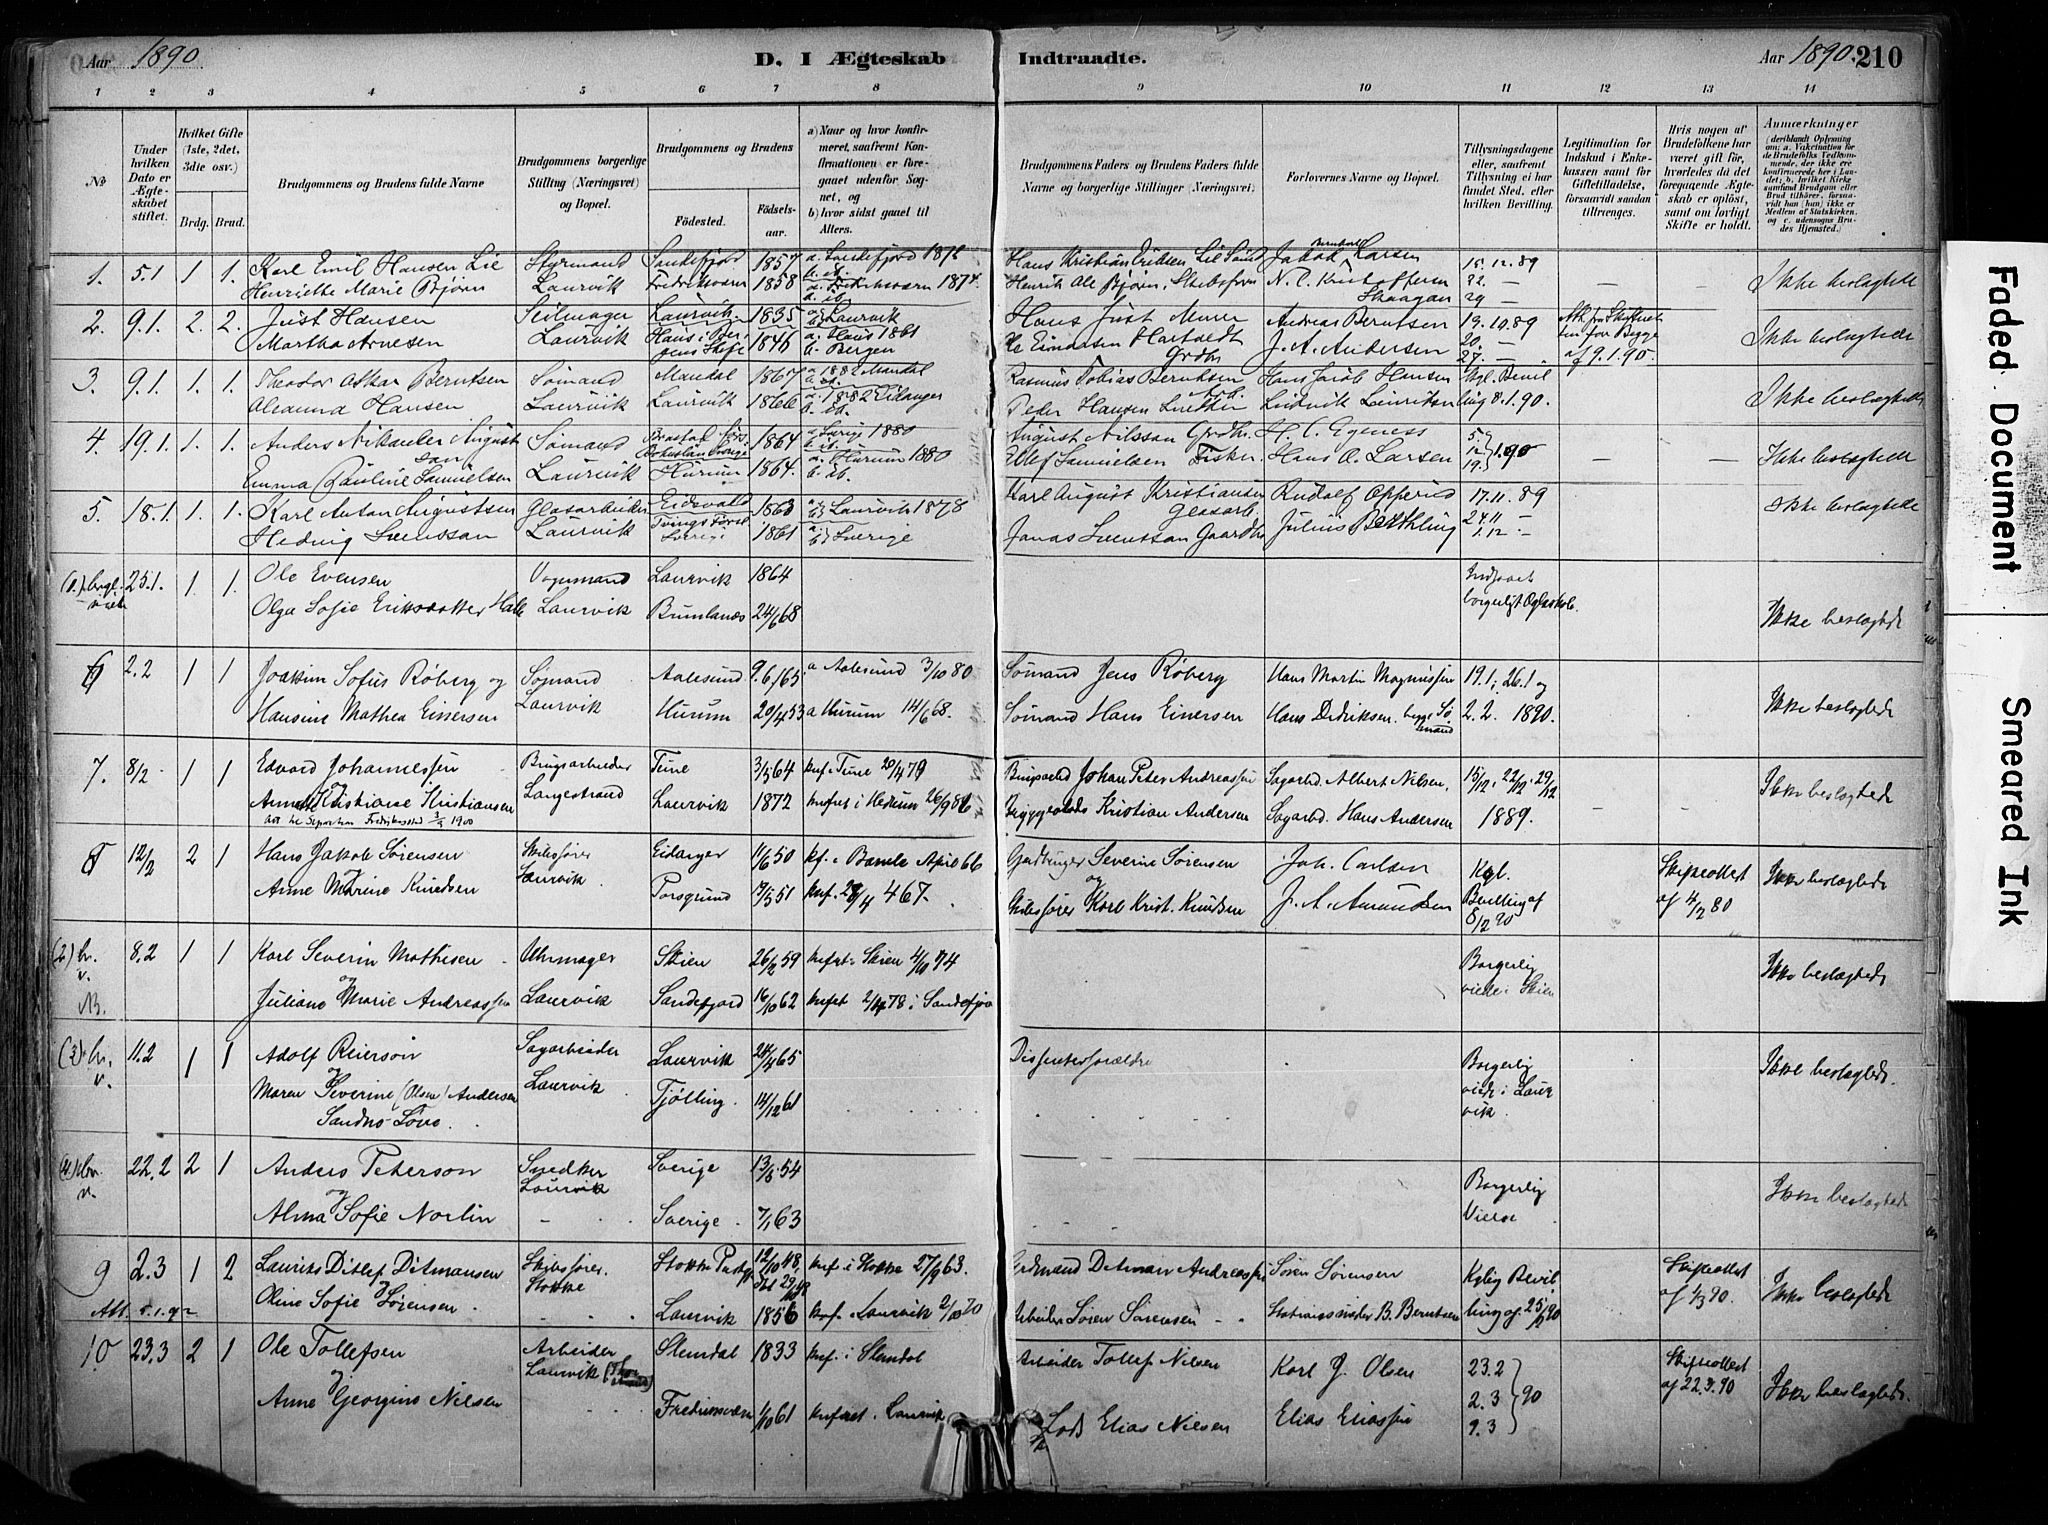 Aar 1890.
D. I Ægteskab Indtraadte.
Aar 1890. 210
1 2 3 4 5 6 7 8 9 10 11 12 13 14
No.
Under hvilken Dato er Ægteskabet stiftet.
Hvilket Gifte (1ste, 2det, 3die osv.)
Brdg. Brud.
Brudgommens og Brudens fulde Navne
Brudgommens borgerlige Stilling (Næringsvei) og Bopæl.
Brudgommens og Brudens
Fødested. Fødselsaar.
a) Naar og hvor konfirmeret, saafremt Konfirmationen er foregaaet udenfor Sognet, og
b) hvor sidst gaaet til Alters.
Brudgommens Faders og Brudens Faders fulde Navne og borgerlige Stillinger (Næringsvei).
Forlovernes Navne og Bopæl.
Tillysningsdagene eller, saafremt Tillysning ei har fundet Sted, efter hvilken Bevilling.
Legitimation for Indskud i Enkekassen samt for Giftetilladelse, forsaavidt saadan tiltrænges.
Hvis nogen af Brudefolkene har været gift før, hvorledes da det foregaaende Ægteskab er opløst, samt om lovligt Skifte er holdt.
Anmærkninger
(deriblandt Oplysning om: a. Vakcination for de Brudefolks Vedkommende, der ikke ere konfirmerede her i Landet; b. hvilket Kirkesamfund Brudgom eller Brud tilhører, forsaavidt han (hun) ikke er Medlem af Statskirken, og c. udensogns Brudes Hjemsted.)
1. 5.1 1 1. Karl Emil Hansen Lie Styrmand Sandefjord 1857 a. Sandefjord 1872 Hans Kristian Eriksen Lie Jakob Bernhard Larsen 15.12.89 Ikke beslægtede
Henriette Marie Bjørn Laurvik Fredriksværn 1858 a. Fredriksværn 1874. b. ib. Henrik Ole Bjørn, Skibsfører N. C. Kristoffersen 22. — 29 —
2. 9.1. 2. 2. Just Hansen Seilmager Laurvik. 1835 Laurvik Hans Just Andreas Berntsen 19.10.89 af 9.1.90. Ikke beslægtede
Martha Arnesen Laurvik Haus i Bergens Stift 1846 a. Haus 1861 b. Bergen J. A. Andersen 20. — 27. —
3. 9.1. 1. 1. Theodor Oskar Berntsen Sømand Mandal 1867 a. 1882 Mandal Rasmus Tobias Berntsen Hans Jacob Hansen Kgl. Bevilling 8.1.90. Ikke beslægtede
Hansen Laurvik Laurvik 1866 a. 1882 Eidanger b. ib. Peder Hansen Ludvik Lauritsen
4. 19.1. 1. 1. Anders Nikander Augustson Sømand Brastad Sogn Bohuslän Sverige 1864 a. Sverige 1880 August Nilsson Grdbr. H. C. Egeness 5. 12 19. 1.90 Ikke beslægtede
Emma Pauline Samuelsen Laurvik Hurum 1864. a. Hurum 1880 b. ib. Ellef Samuelsen Fisker Hans O. Larsen
5. 18.1. 1. 1. Karl Anton Augustsen Glasarbeider Eidsvold 1863 Laurvik 1878 Karl August Kristiansen Glasarb. Rudolf Opperud 17.11.89 Ikke beslægtede
Hedvig Svensson Laurvik Sverige 1861 Sverige Jonas Svensson Gaardbr. Julius Berthling 24.11 — 1.12 —
(1.) borgl. viet 25.1. 1. 1. Ole Evensen Vognmand Laurvik 1864 Indgaaet borgerligt Ægteskab. Ikke beslægtede
Olga Sofie Eriksdatter Laurvik Brunlanæs 24/6 68
6 2.2 1 1 Joakim Sofus Røberg og Sømand Aalesund 9.6/65 a Aalesund 3/10 80 Sømand Jens Røberg Hans Martin Magnussen 19.1; 26.1 og Ikke beslægtede
Hansine Mathea Einersen Laurvik Hurum 20/4 53 a Hurum 14/6 68. Sømand Hans Einersen Hans Didriksen. begge Sømænd 2.2. 1890.
7. 8/2 1 1 Edvard Johannessen Brugsarbeider Tune 3/5 64 knf. Tune 20/4 79 Johan Peter Andreassen Sagarbd. Albert Nilsen. 15/12. 22/12. 29/12 Ikke beslægtede
Kristiane Kristiansen Langestrand Laurvik 1872 knfret i Hedrum 26/9 86 Kristian Andersen Sagarbd. Hans Andersen 1889.
Fredrikstad 1900
8 12/2 2 1 Hans Jakob Sørensen Skibsfører Eidanger 11/6 50 kf. i Bamle April 66 Gardbruger Severin Sørensen Joh. Carlsen Kgl. Skifteattest af 4/2 80 Ikke beslægtede
og Anne Marine Knudsen Laurvik. Porsgrund 19/5 51 Skibsfører Karl Krist. Knudsen J. A. Amundsen Bevilling af 8/12 90
(2) br. v. 8.2 1 1 Karl Severin Mathisen Uhrmager Skien 26/2 59 knfret i Skien 4/10 74 Borgerlig viede i Skien Ikke beslægtede
og Juliane Marie Andreassen Laurvik Sandefjord 16/10 62 knfret 2/4 78 i Sandefjord
(3) br. v. 11.2 1 1 Adolf Reierson Sagarbeider Laurvik 24/4 65 Dissenterforældre Borgerlig viede i Laurvik Ikke beslægtede.
og Maren Severine (Olsen) Andersen Laurvik Tjølling. 14/12 61
(4) br. v. 22.2 2 1 Anders Peterson Snedker Laurvik Sverige 13/5 54 Borgerlig Vielse Ikke beslægtede
og Alma Sofie Norlin Sverige. 7/1 63
9 2.3 1 2 Laurits Ditlef Ditmansen Skibsfører. Stokke Stokke 12/10 48, knf. i Stokke 27/9 63. Ditman Andreassen Søren Sørensen Kglig Bevilling af 25/2 90 Skifteattest af 1/3 90. Ikke beslægtede
Att. 5.1.92
og Oline Sofie Sørensen. Laurvik 1856 knf. Laurvik 2/10 70 Arbeider Søren Sørensen B. Berntsen
10 23.3 2 1 Ole Tollefsen Arbeider Slemdal 1833 knf. i Slemdal Arbeider Tollef Nilsen Karl J. Olsen 23.2 2.3 9.3 90 Skifteattest af 22.3.90 Ikke beslægtede
og Anne Georgine Nilsen Laurvik Fredriksværn 1/10 61 knfret i Laurvik Lods Elias Nilsen Elias Eliassen
Faded Document
Smeared Ink